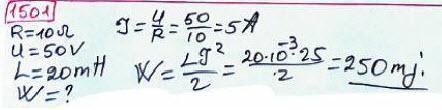 1501
R=10Ω
U=50V
L=20mH
W=?
I=U/R=50/10=5A
W=LI²/2=20·10⁻³·25/2=250mj.